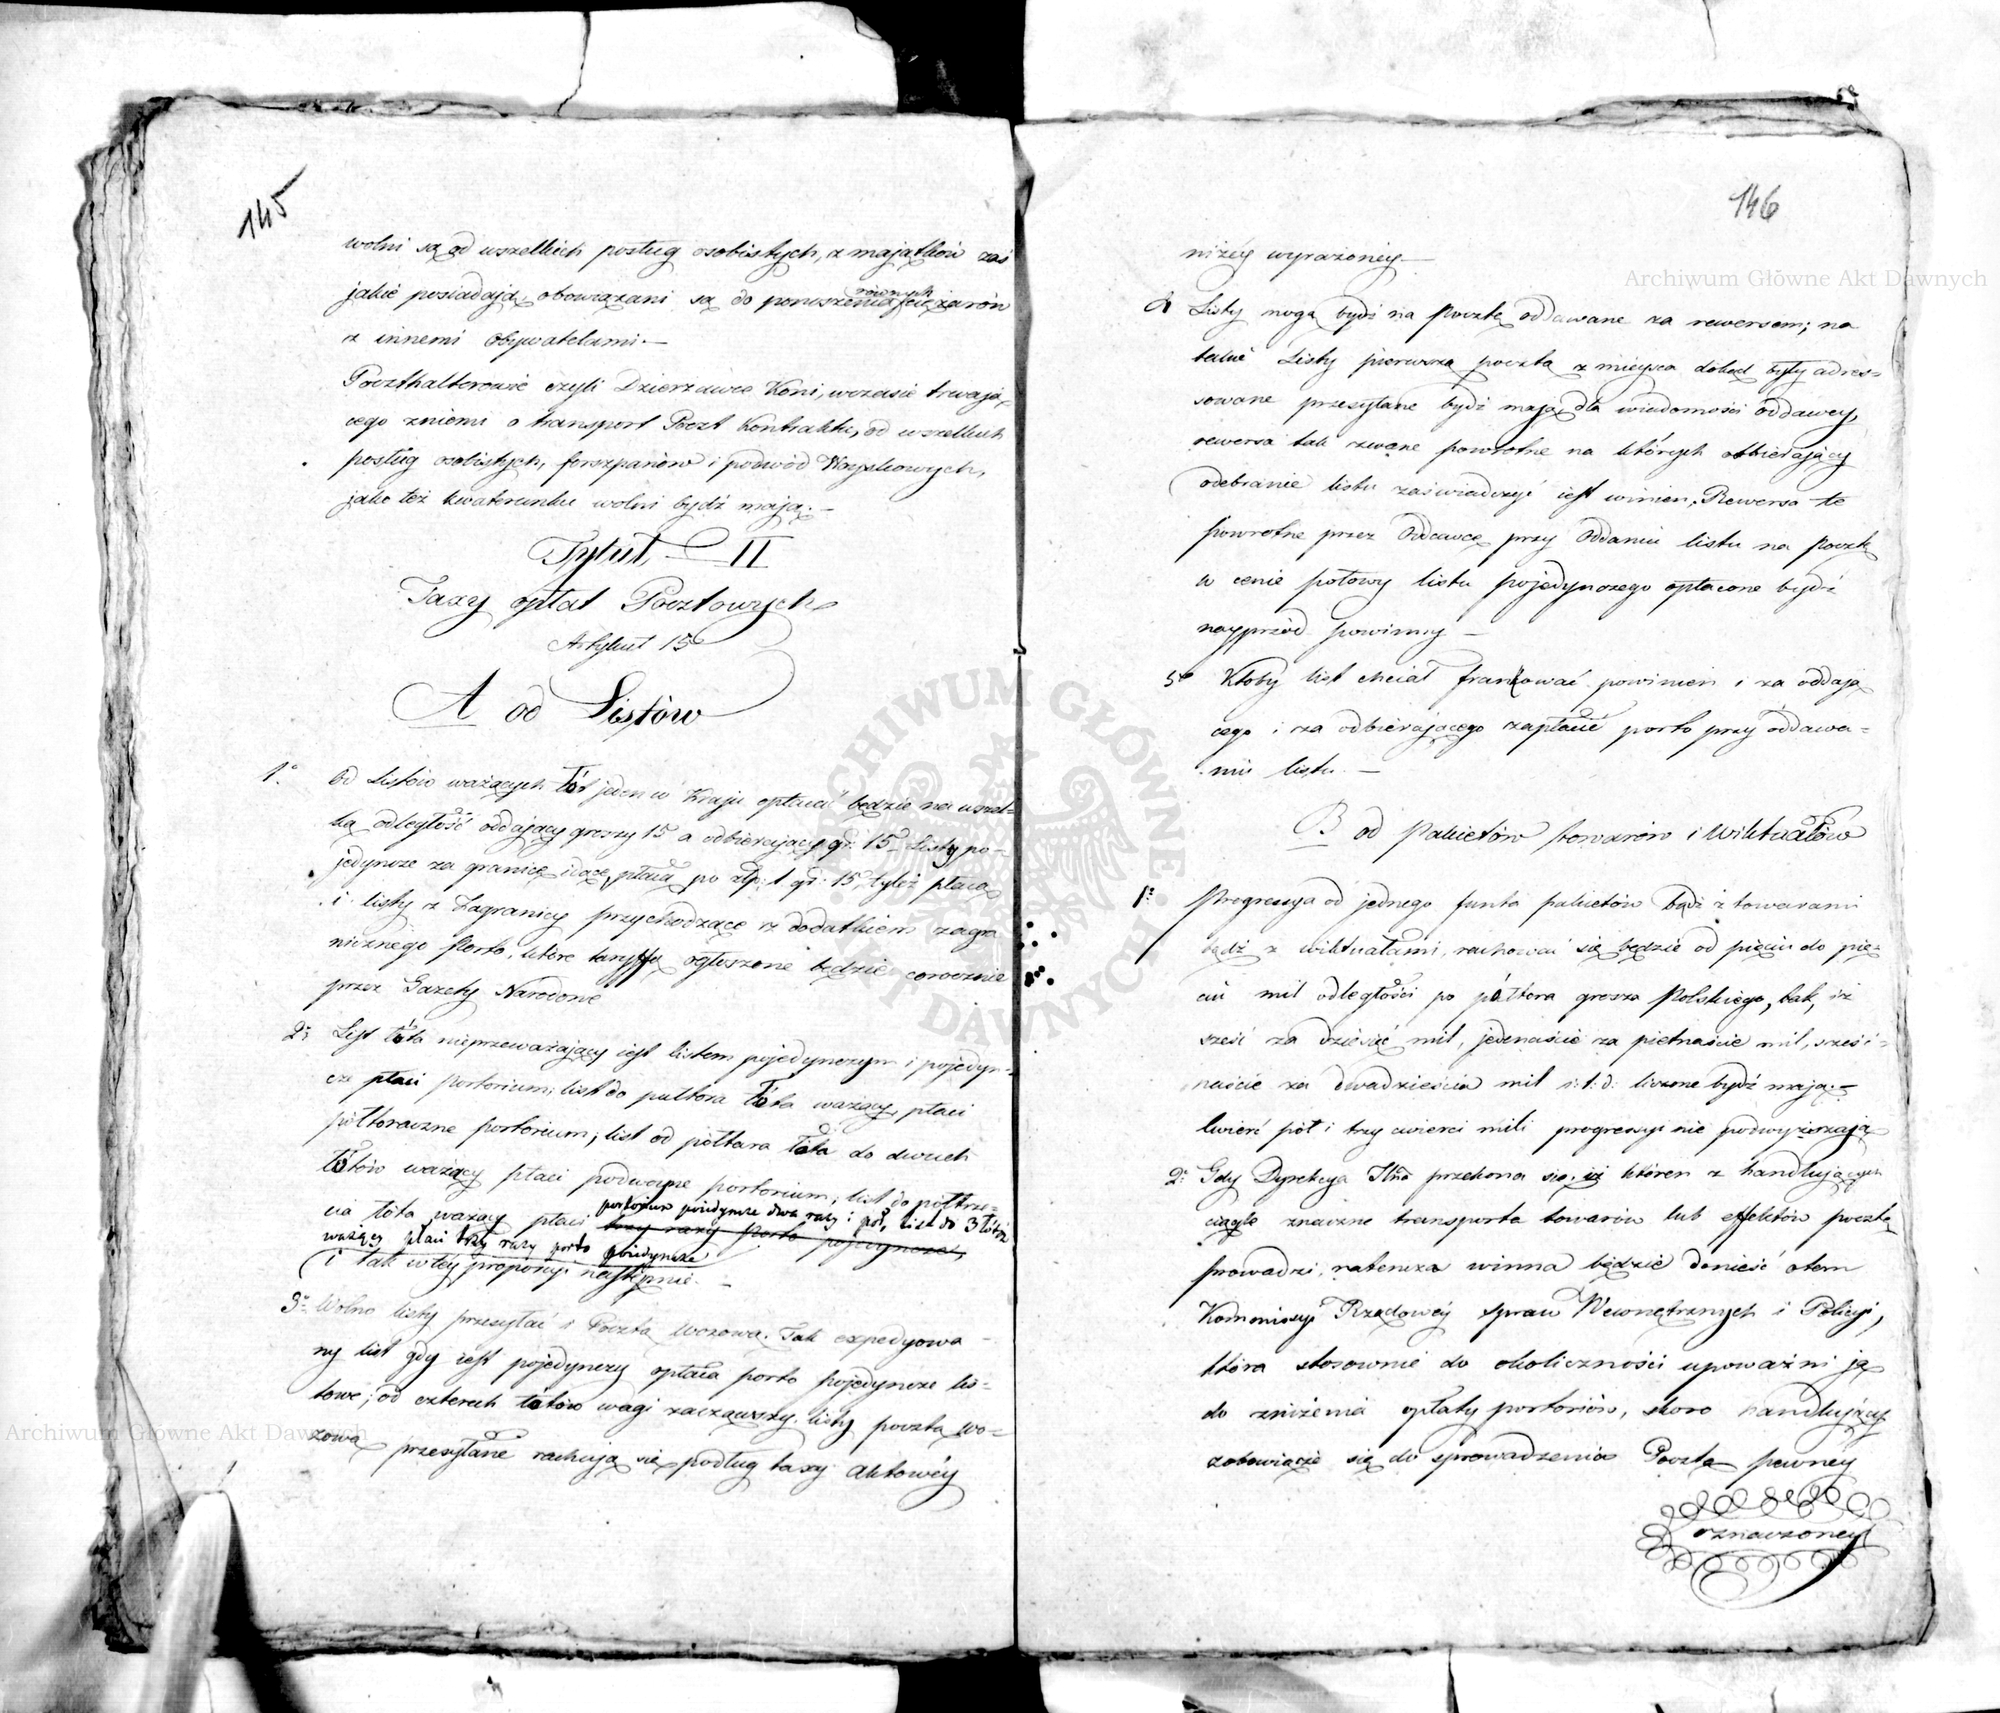 145
wolni są od wszelkich posług osobistych, z majątków zaś
jakie posiadają, obowiązani są do ponoszenia równych ciężarów
z innemi obywatelami.—
Poczthalterowie czyli Dzierzawce Koni, wczasie trwają-
cego zniemi o transport Poczt Kontraktu, od wszelkich
posług osobistych, forszpanów i podwód Woyskowych,
jako też kwaterunku wolni bydź mają.—
Tytuł II
Taxy opłat Pocztowych
Artykuł 15
A od Listów
1° Od Listów ważących łót jeden w Kraju opłacać będzie na wszel-
ką odległość oddający groszy 15 a odbierający gr: 15. Listy po-
jedyncze za granicę idące, płacą po złp: 1 gr: 15, tyleż płacą
i listy z Zagranicy przychodzące z dodatkiem zagra
nicznego Porto, które taryffą ogłoszone będzie corocznie
przez Gazety Narodowe
2° List łóta nieprzeważający iest listem pojedynczym i pojedyn-
cze płaci portorium; list do pułtora łóta ważący, płaci
półtoraczne portorium; list od półtora łóta do dwuch
łótów ważący płaci podwoyne portorium; list do półtrze-
cia łóta ważący płaci trzy razy porto pojedyncze,
portorium poiedyncze dwa razy i pół, List do 3 łótów
ważący płaci trzy razy porto poiedyncze
i tak w tey proporcyi następnie.—
3° Wolno listy przesyłać i Pocztą wozową. Tak expedyowa-
ny list gdy iest pojedynczy opłaca porto pojedyncze lis-
towe; od czterech łótów wagi zacząwszy listy pocztą wo-
zową przesyłane rachują się podług taxy Aktowéy
146
niżéy wyrażoney.—
4 Listy mogą bydź na Pocztę oddawane za rewersem; na
takie Listy pierwszą pocztą z mieysca dokąd były adres-
sowane przesyłane bydź mają dla wiadomości oddawcy,
rewersa tak zwane powrotne na których odbierający
odebranie listu zaświadczyć iest winien. Rewersa te
powrotne przez Oddawcę przy Oddaniu listu na Pocztę
w cenie połowy listu pojedynczego opłacone bydź
nayprzód powinny —
5° Ktoby list chciał frankować powinien i za oddają
cego i za odbierającego zapłacić porto przy oddawa-
niu listu.—
B od Pakietów towarów i Wiktuałów
1° Progressya od jednego funta pakietów bądź z towarami
bądź z wiktuałami, rachować się będzie od pięciu do pię-
ciu mil odległości po półtora grosza Polskiego, tak, iż
sześć za dziesięć mil, jedenaście za piętnaście mil, sześć-
naście za dwadzieścia mil i: t: d: liczone bydź mają.—
Cwierć pół i trzy cwierci mili progressyi nie podwyższają
2° Gdy Dyrekcya Jlna przekona się, iż któren z handlujących
ciągle znaczne transporta towarów lub effektów pocztą
prowadzi, natenczas winna będzie donieść otem
Kommissyi Rządowéy spraw Wewnętrznych i Policyi,
która stosownie do okoliczności upoważni ją
do zniżenia opłaty portoriów, skoro handlujący
zobowiąże się do sprowadzenia Pocztą pewney
oznaczoney
Archiwum Główne Akt Dawnych
Archiwum Główne Akt Dawnych
ARCHIWUM GŁÓWNE AKT DAWNYCH